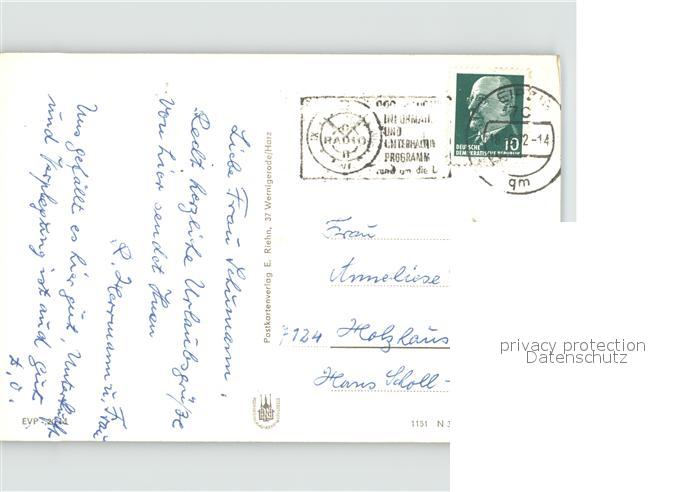 Liebe Frau Schumann,
Recht herzliche Urlaubsgrüße
von hier sendet Ihnen
P. Herrmann u. Frau
Uns gefällt es hier gut, Unterkunft
und Verpflegung ist auch gut
D. O.
Postkartenverlag E. Riehn, 37 Wernigerode/Harz
RADIO
INFORMAT.
UND
UNTERHALTU
PROGRAMM
rund um die
DEUTSCHE
DEMOKRATISCHE REPUBLIK
10
qm
Frau
Anneliese
7124 Holzhaus
Hans Scholl-
EVP
1151 N
privacy protection
Datenschutz